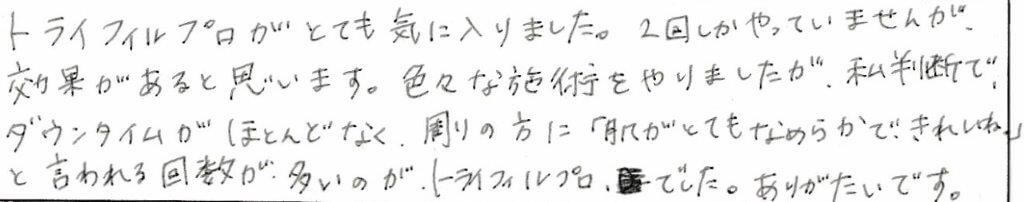 トライフィルプロがとても気に入りました。2回しかやっていませんが、
効果があると思います。色々な施術をやりましたが、私判断で、
ダウンタイムがほとんどなく、周りの方に「肌がとてもなめらかで、きれいね。」
と言われる回数が多いのが、トライフィルプロ、でした。ありがたいです。